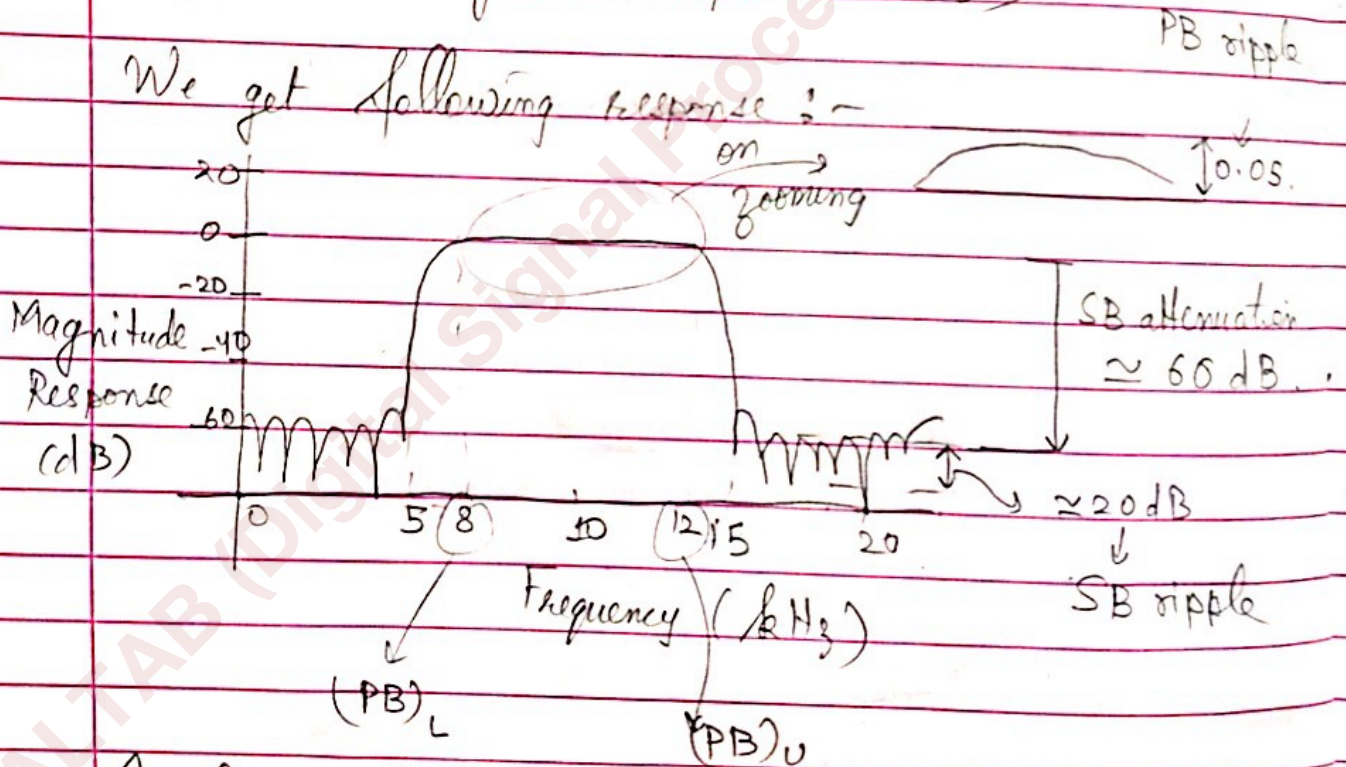 PB ripple
We get following response :-
on
zooming
0.05.
20
0
-20
-40
-60
Magnitude
Response
(dB)
SB attenuation
≃ 60 dB.
≃20 dB
SB ripple
0 5 8 10 12 15 20
Frequency (kHz)
(PB)L
(PB)U
ALTAB (Digital Signal Proce